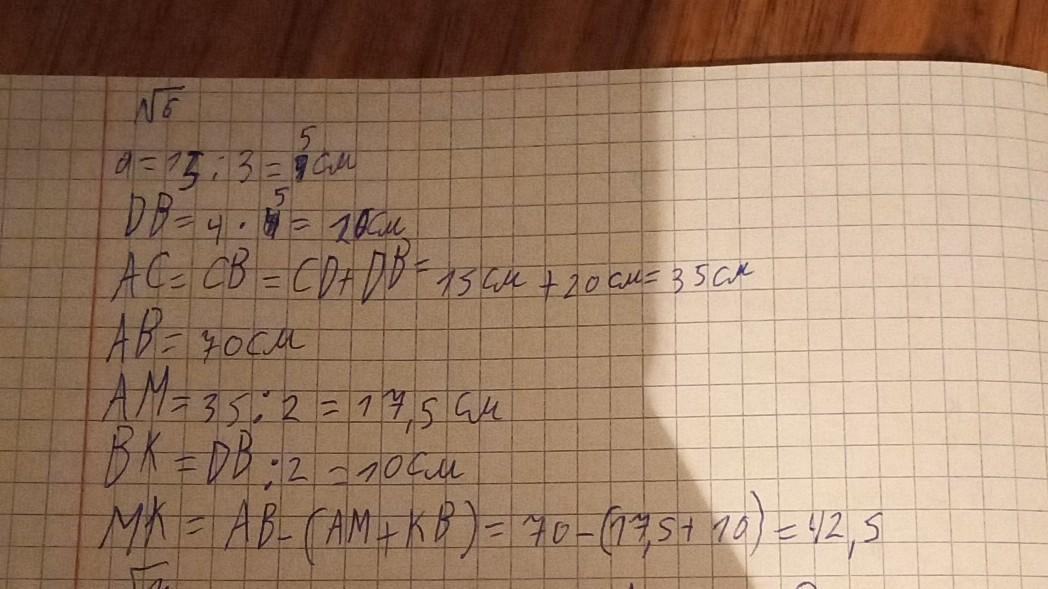 №5
a = 15 : 3 = 5 см
DB = 4 · 5 = 20 см
AC = CB = CD + DB = 15 см + 20 см = 35 см
AB = 70 см
AM = 35 : 2 = 17,5 см
BK = DB : 2 = 10 см
MK = AB - (AM + KB) = 70 - (17,5 + 10) = 42,5